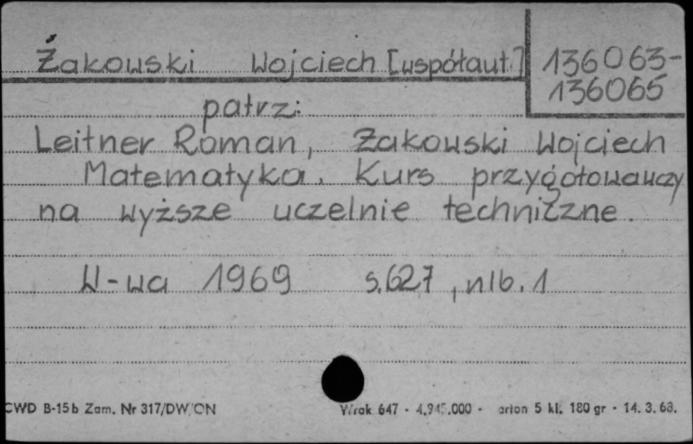 Żakowski Wojciech [współaut.] 136063-
136065
patrz:
Leitner Roman, Żakowski Wojciech
Matematyka. Kurs przygotowawczy
na wyższe uczelnie techniczne.
W-wa 1969 s.627, nlb. 1
CWD B-15b Zam. Nr 317/DW/ON 647 - 4.945.000 - 5 kl. 180 gr - 14. 3. 68.